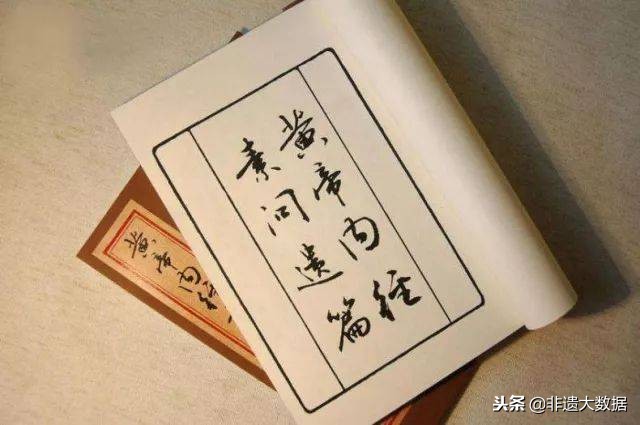 黄帝内经
素问遗篇
黄帝内经
头条@非遗大数据